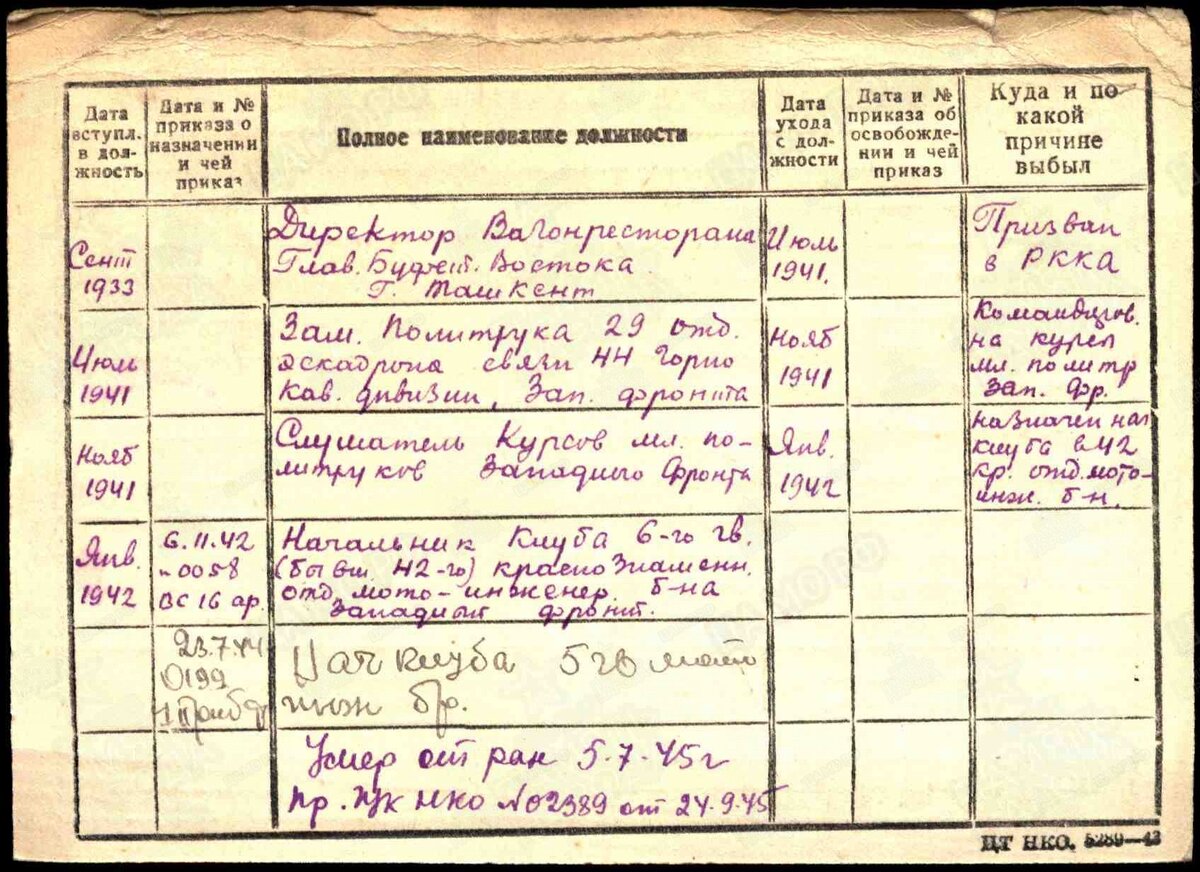 Дата вступл. в дол-жность
Дата и № приказа о назначении и чей приказ
Полное наименование должности
Дата ухода с дол-жности
Дата и № приказа об освобожде-нии и чей приказ
Куда и по какой причине выбыл
Сент 1933
Директор Вагонресторана
Глав. Буфет. Востока
г. Ташкент
Июль 1941.
Призван
в РККА
Июль 1941
Зам. Политрука 29 отд.
эскадрона связи 44 Горно
Кав. дивизии, Зап. фронта
Нояб 1941
Командиров.
на курсы
мл. политр
Зап. фр.
Нояб 1941
Слушатель Курсов мл. по-
литруков Западного Фронта
Янв. 1942
назначен нач
клуба в 42
кр. отд. мото-
инж. б-н.
Янв. 1942
6.11.42
-0058
ВС 16 ар.
Начальник Клуба 6-го гв.
(бывш. 42-го) краснознаменн.
отд. мото-инженер. б-на
Западный фронт.
23.7.44
0199
1 Приб ф
Нач клуба 5 гв мото
инж бр.
Умер от ран 5.7.45г
Пр. ГУК НКО №02389 от 24.9.45
ЦТ НКО. 5289—43